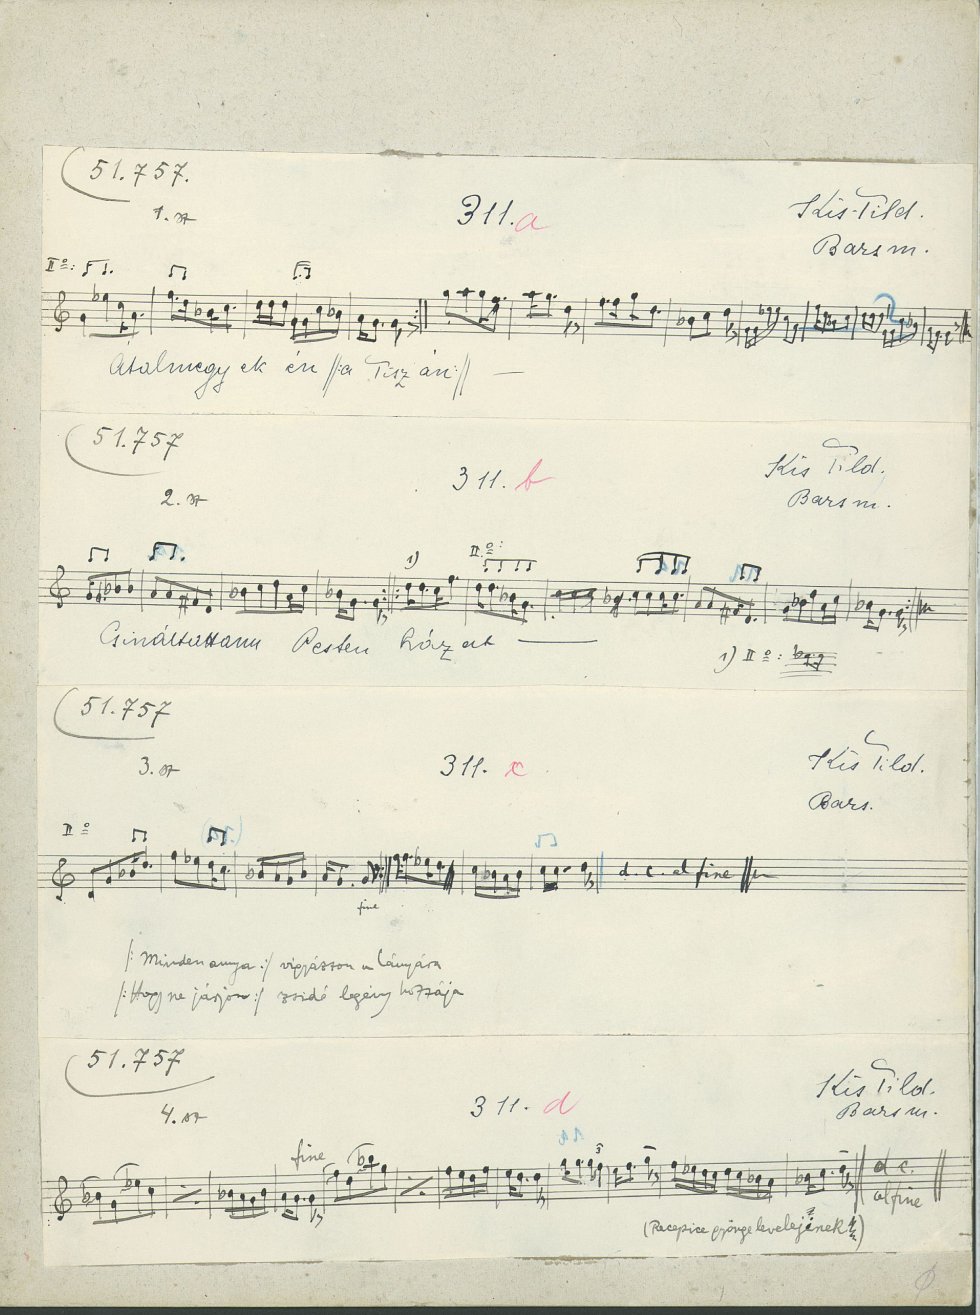 51.757.
1. sz
311.a
Kis-Tild.
Bars m.
II⁰:
Átalmegyek én //:a Tiszán:// —
51.757
2. sz
311.b
Kis Tild.
Bars m.
1)
II⁰:
Csináltattam Pesten házat —
1) II⁰:
51.757
3. sz
311. c
Kis Tild.
Bars.
II⁰
d. c. al fine
fine
/: Minden anya :/ vigyázzon a lányára
/: Hogy ne járjon :/ zsidó legény hozzája
51.757
4. sz
311. d
Kis Tild.
Bars m.
fine
3
d c.
al fine
(Recepice gyönge levelejének)